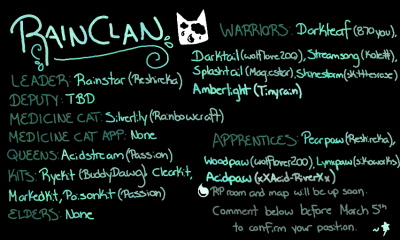 RAINCLAN
LEADER: Rainstar (Reshireka)
DEPUTY: TBD
MEDICINE CAT: Silverlily (Rainbowcraft)
MEDICINE CAT APP: None
QUEENS: Acidstream (Passion)
KITS: Ryekit (BuddyDawg) Clearkit,
Markedkit, Poisonkit (Passion)
ELDERS: None
WARRIORS: Darkleaf (870you),
Darktail (wolflove200), Streamsong (Kole#),
Splashtail (Magestar),
Amberlight (Tinyrain)
APPRENTICES: Pearpaw (Reshireka),
Woodpaw (wolflover200), Lynxpaw
Acidpaw (xXAcid-RiverXx)
RP room and map will be up soon.
Comment below before March 5th
to confirm your position.